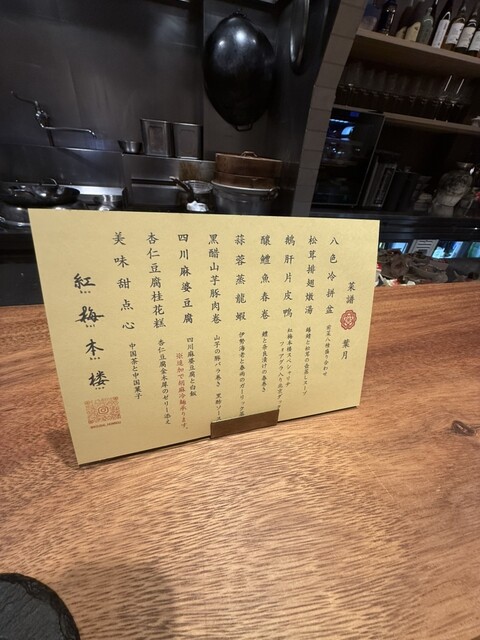 菜譜
葉月
八色冷拼盆
前菜八種盛り合わせ
松茸排翅燉湯
鵝肝片皮鴨
釀鱧魚春巻
鱧と奈良漬けの春巻き
蒜蓉蒸龍蝦
伊勢海老と春雨のガーリック蒸
黒醋山芋豚肉巻
山芋の豚バラ巻き 黒酢ソース
四川麻婆豆腐
四川麻婆豆腐と白飯
※追加で胡麻冷麺承ります。
杏仁豆腐桂花糕
杏仁豆腐金木犀のゼリー添え
美味甜点心
中国茶と中国菓子
紅梅本楼